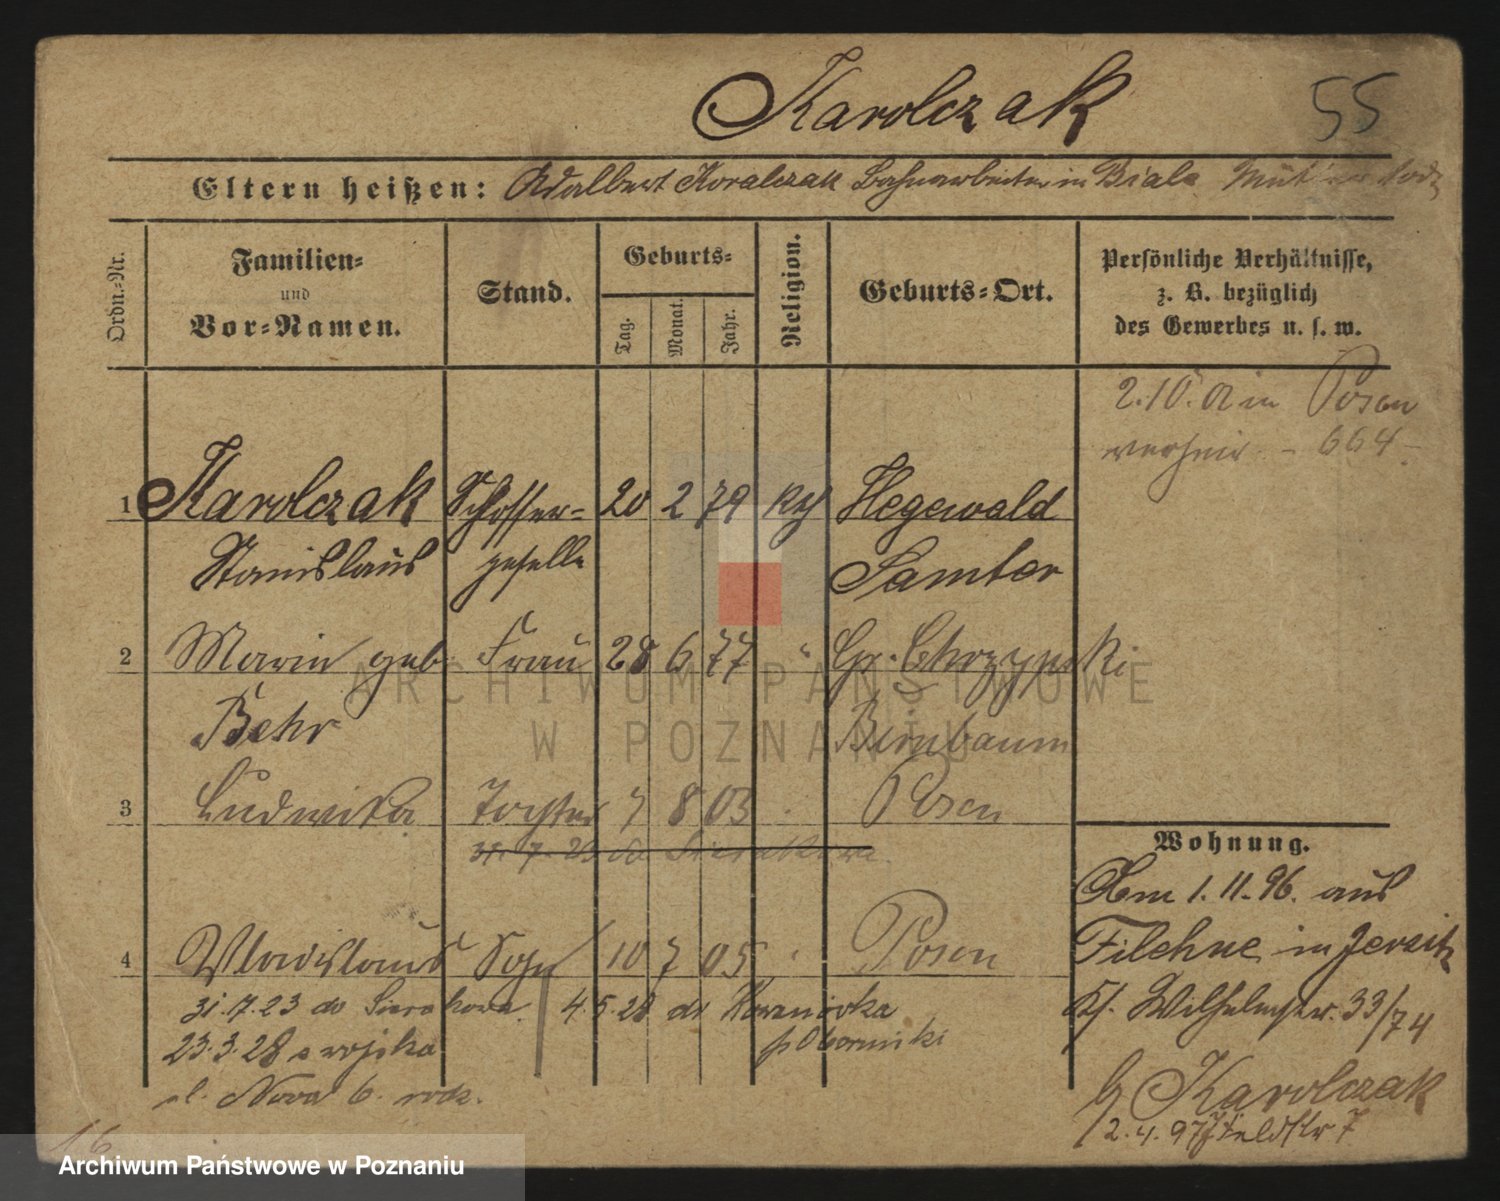 Karolczak
55
Eltern heißen: Adalbert Koralczak Bahnarbeiter in Biala Mutter todt
Ordn.-Nr.
Familien-
und
Vor-Namen.
Stand.
Geburts-
Tag.
Monat.
Jahr.
Religion.
Geburts-Ort.
Persönliche Verhältnisse,
z. B. bezüglich
des Gewerbes u. s. w.
2.10. in Posen
verheir - 664 -
1 Karolczak Schlosser- 20 2 79 kth Hegewald
Stanislaus geselle Samter
2 Marin geb. Frau 28 6 77 " Gr. Chrzypski
Behr Birnbaum
3 Ludwika Tochter 7 8 03 Posen
31. 7. 23 do Sierakowa
4 Wladislaus Sohn 10 7 05 " Posen
31.7.23 do Sierakowa. 4.5.28 do
23.3.28 z wojska p Oborniki
ul. Nowa 6. rodz.
Wohnung.
Am 1.11.96. aus
Filehne in Jersitz
Wilhelmstr. 33/74
b Karolczak
2.4.97 Feldstr 7
16
ARCHIWUM PAŃSTWOWE
W POZNANIU
Archiwum Państwowe w Poznaniu